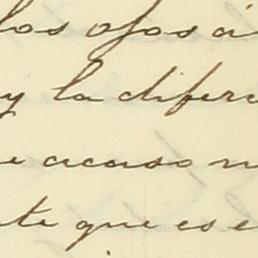 los ojos á
y la difere
e acaso n
te que es e